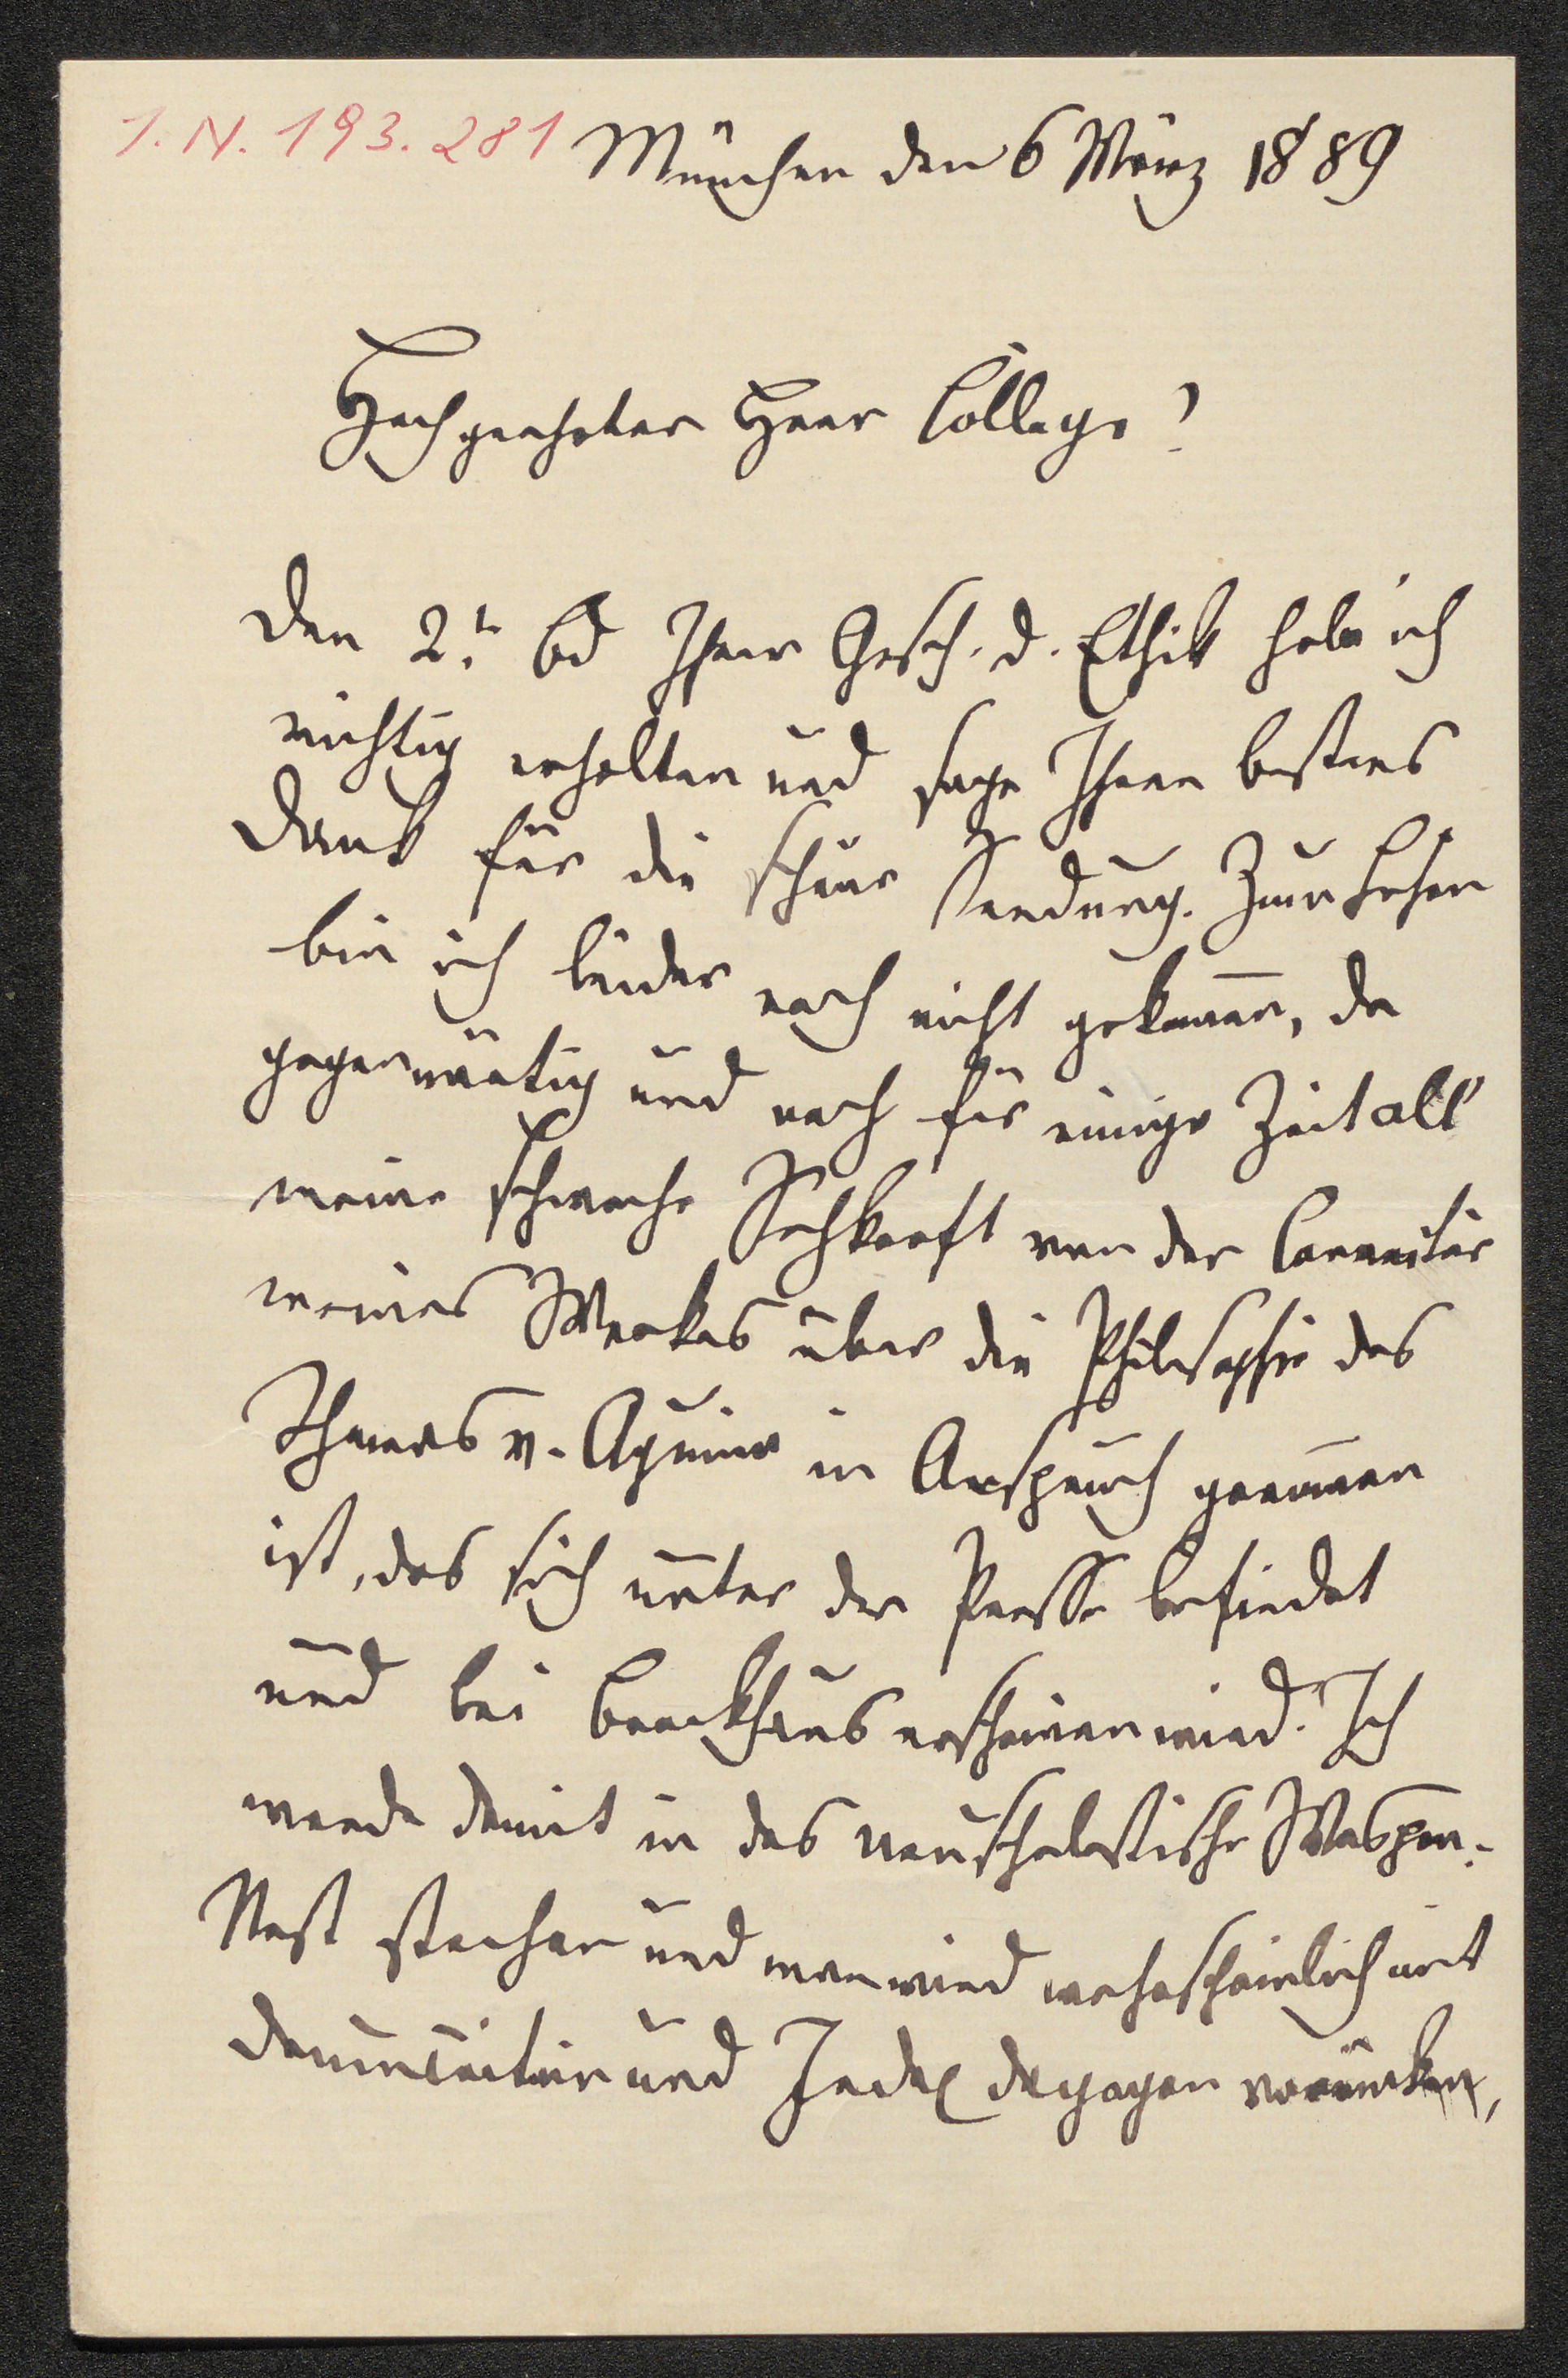 I. N. 193.281
München den 6 März 1889
Hochgeehrter Herr College!
Den 2t. Bd Ihrer Gesch. d. Ethik habe ich
richtig erhalten und sage Ihnen besten
Dank für die schöne Sendung. Zum Lesen
bin ich leider noch nicht gekommen, da
gegenwärtig und noch für einige Zeit all'
meine schwache Sehkraft von der Correctur
meines Werkes über die Philosophie des
Thomas v. Aquino in Anspruch genommen
ist, das sich unter der Presse befindet
und bei Brockhaus erscheinen wird. Ich
werde damit in das neuscholastische Wespen-
Nest stechen und man wird wahrscheinlich mit
Denunciation und Index dagegen vorrücken,